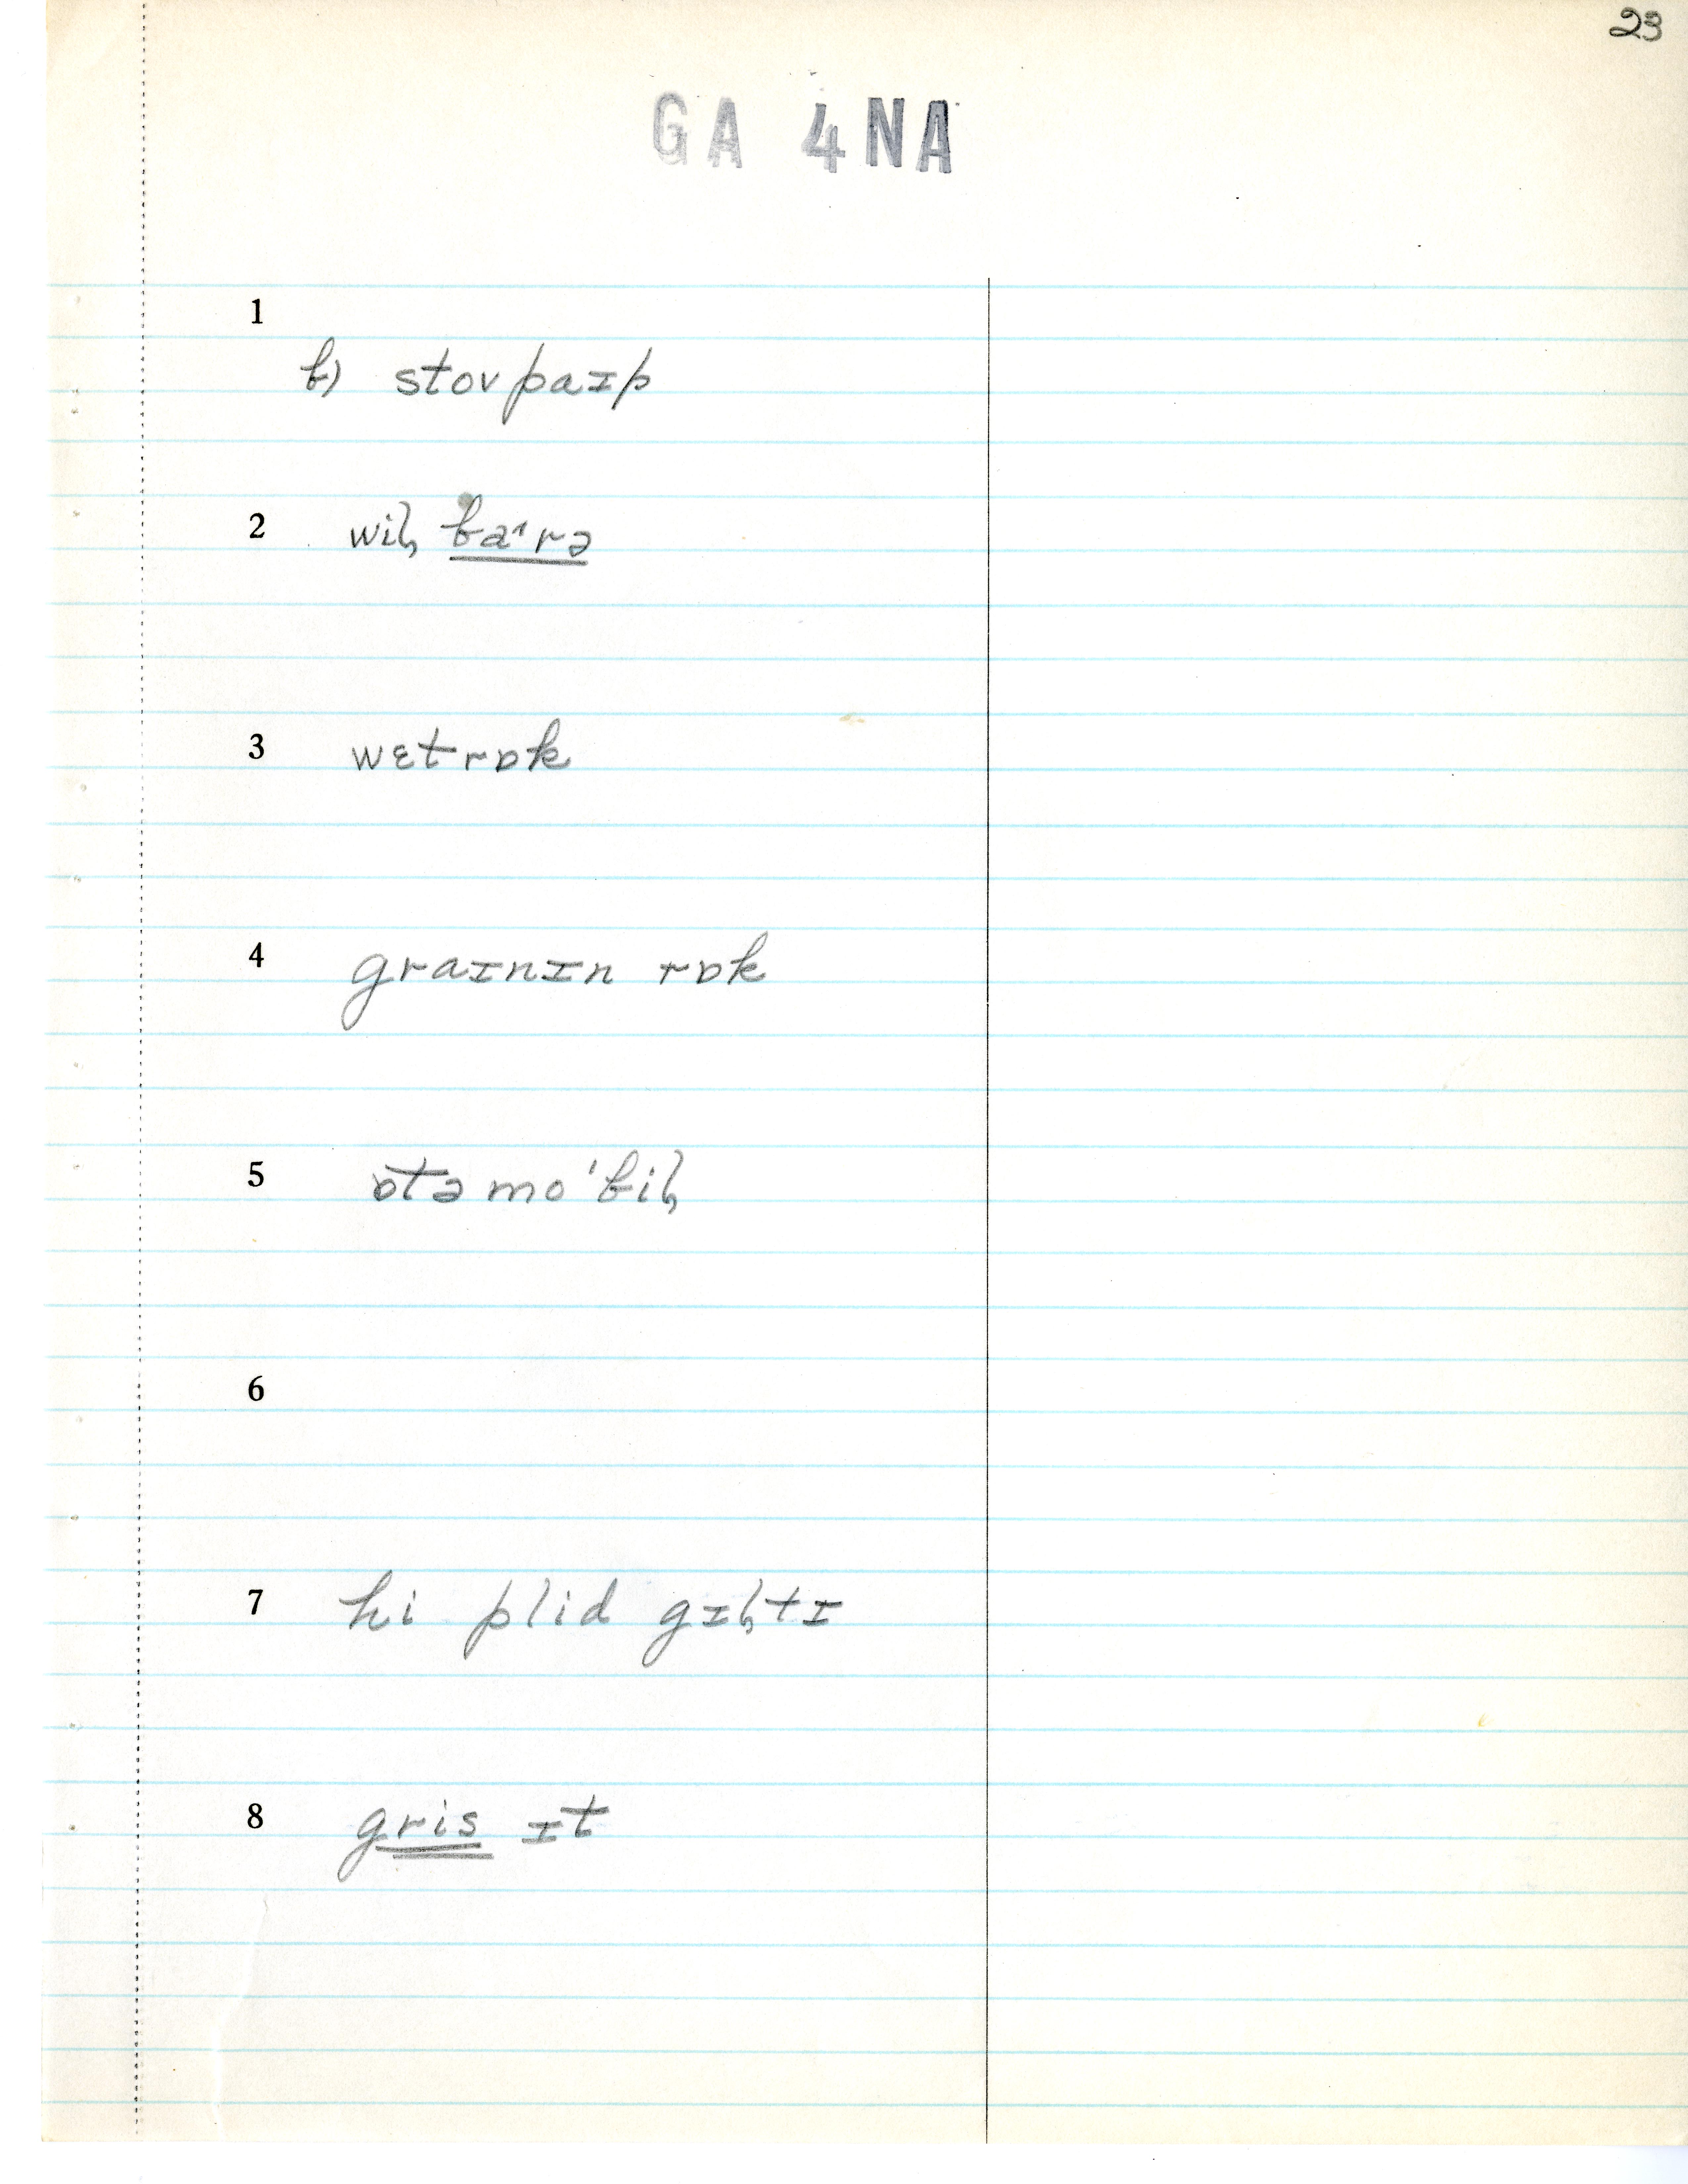 23
GA 4NA
1
b) stov paɪp
2 wiɫ ba˔rə
3 wɛtrɒk
4 graɪnɪn rɒk
5 ɒtəmo'biɫ
6
7 hi plid gɪɫtɪ
8 gris ɪt